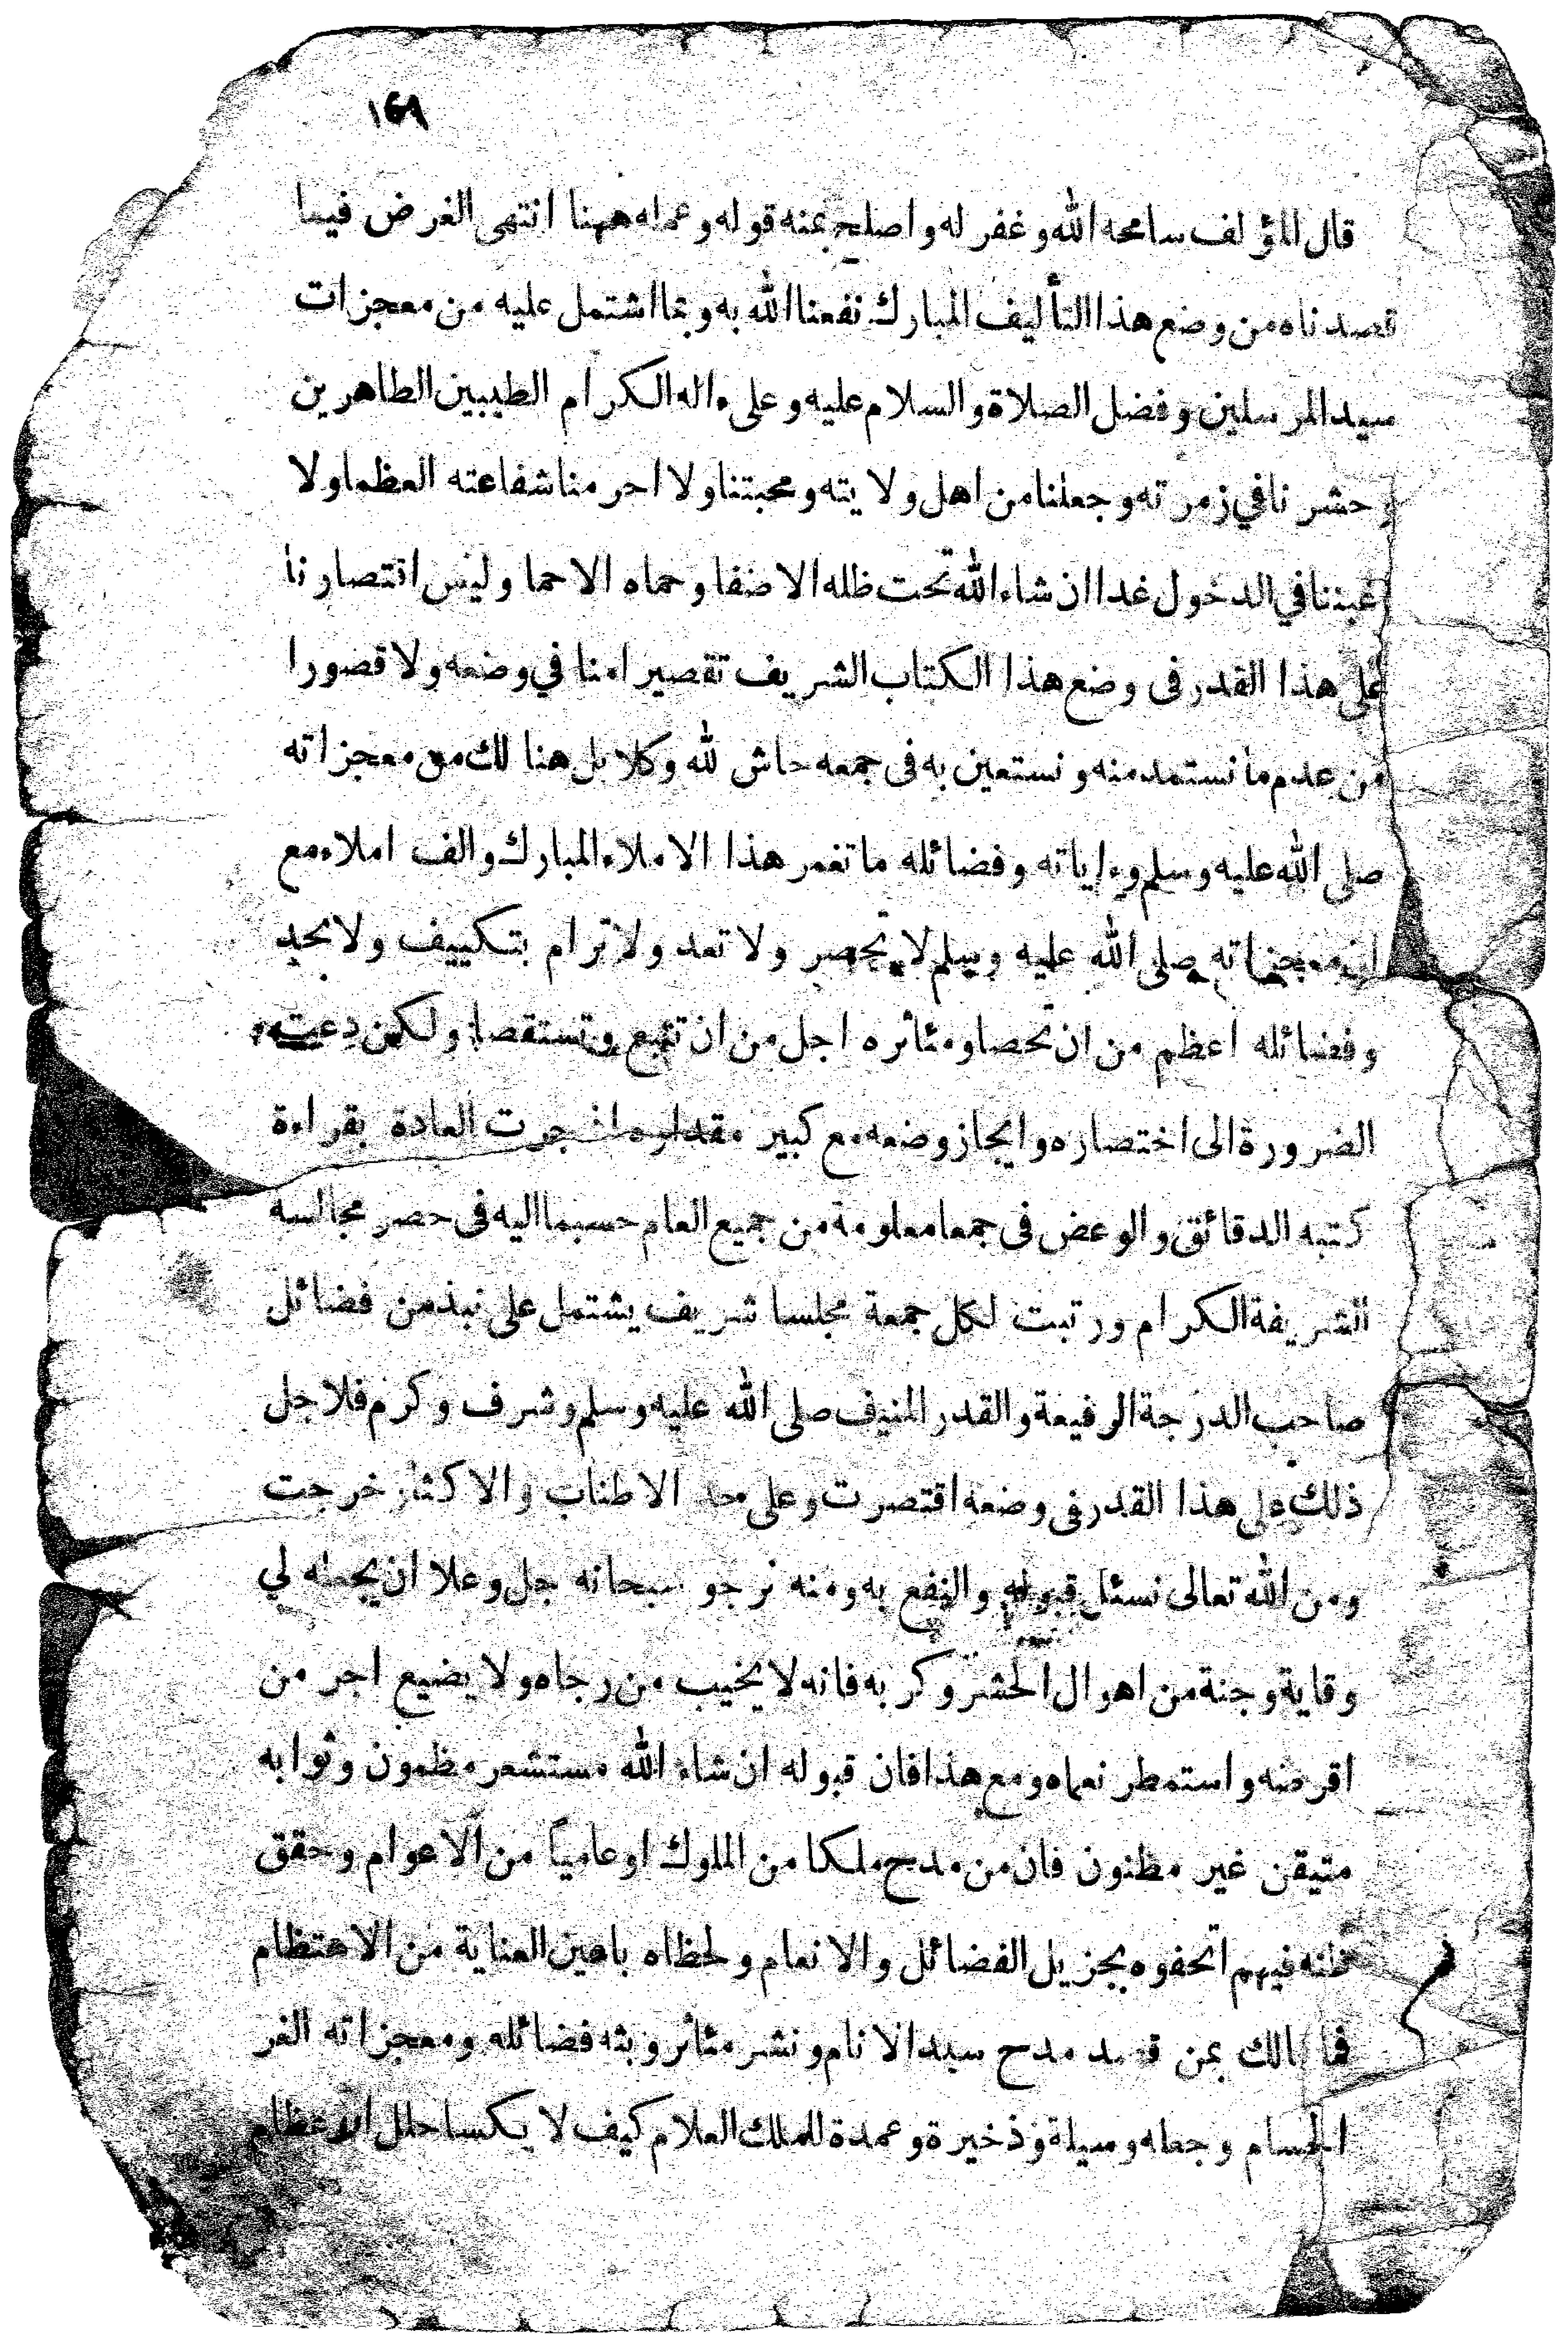 ١٤٩
قال المؤلف سامحه الله وغفر له واصلح بمنه قوله وعمله ههنا انتهى الغرض فيما
قصدناه من وضع هذا التأليف المبارك نفعنا الله به وبما اشتمل عليه من معجزات
سيد المرسلين وفضل الصلاة والسلام عليه وعلى ءاله الكرام الطيبين الطاهرين
وحشرنا في زمرته وجعلنا من اهل ولايته ومحبتنا ولا احرمنا شفاعته العظما ولا
غبننا في الدخول غدا ان شاء الله تحت ظله الاضفا وحماه الاحما وليس انتصارنا
على هذا القدر فى وضع هذا الكتاب الشريف تقصيرا منا في وضعه ولا قصورا
من عدم ما نستمد منه ونستعين به فى جمعه حاش لله وكلا بل هنالك من معجزاته
صلى الله عليه وسلم وءاياته وفضائله ما تغمر هذا الاملاء المبارك والف املاء مع
ان معجزاته صلى الله عليه وسلم لا تحصر ولا تعد ولا ترام بتكييف ولا بحد
وفضائله اعظم من ان تحصا ومئاثره اجل من ان تتبع وتستقصا ولكن دعت
الضرورة الى اختصاره وايجاز وضعه مع كبير مقداره اذ جرت العادة بقراءة
كتبه الدقائق والوعض فى جمعا معلومة من جميع العام حسبما اليه فى حصر مجالسه
الشريفة الكرام ورتبت لكل جمعة مجلسا شريف يشتمل على نبذ من فضائل
صاحب الدرجة الرفيعة والقدر المنيف صلى الله عليه وسلم وشرف وكرم فلاجل
ذلك على هذا القدر فى وضعه اقتصرت وعلى حد الاطناب والاكثار خرجت
ومن الله تعالى نسئل قبوله والنفع به ومنه نرجو سبحانه جل وعلا ان يجعله لي
وقاية وجنة من اهوال الحشر وكربه فانه لا يخيب من رجاه ولا يضيع اجر من
اقرضه واستمطر نعماه ومع هذا فان قبوله ان شاء الله مستشعر مظمون وثوابه
متيقن غير مظنون فان من مدح ملكا من الملوك او عامياً من الاعوام وحقق
ظنه فيهم اتحفوه بجزيل الفضائل والانعام ولحظاه باعين العناية من الاهتظام
فما بالك بمن قصد مدح سيد الانام ونشر مئاثر وبثه فضائله ومعجزاته الغر
الحسام وجعله وسيلة وذخيرة وعمدة للملك العلام كيف لا يكسا حلل الاعظام